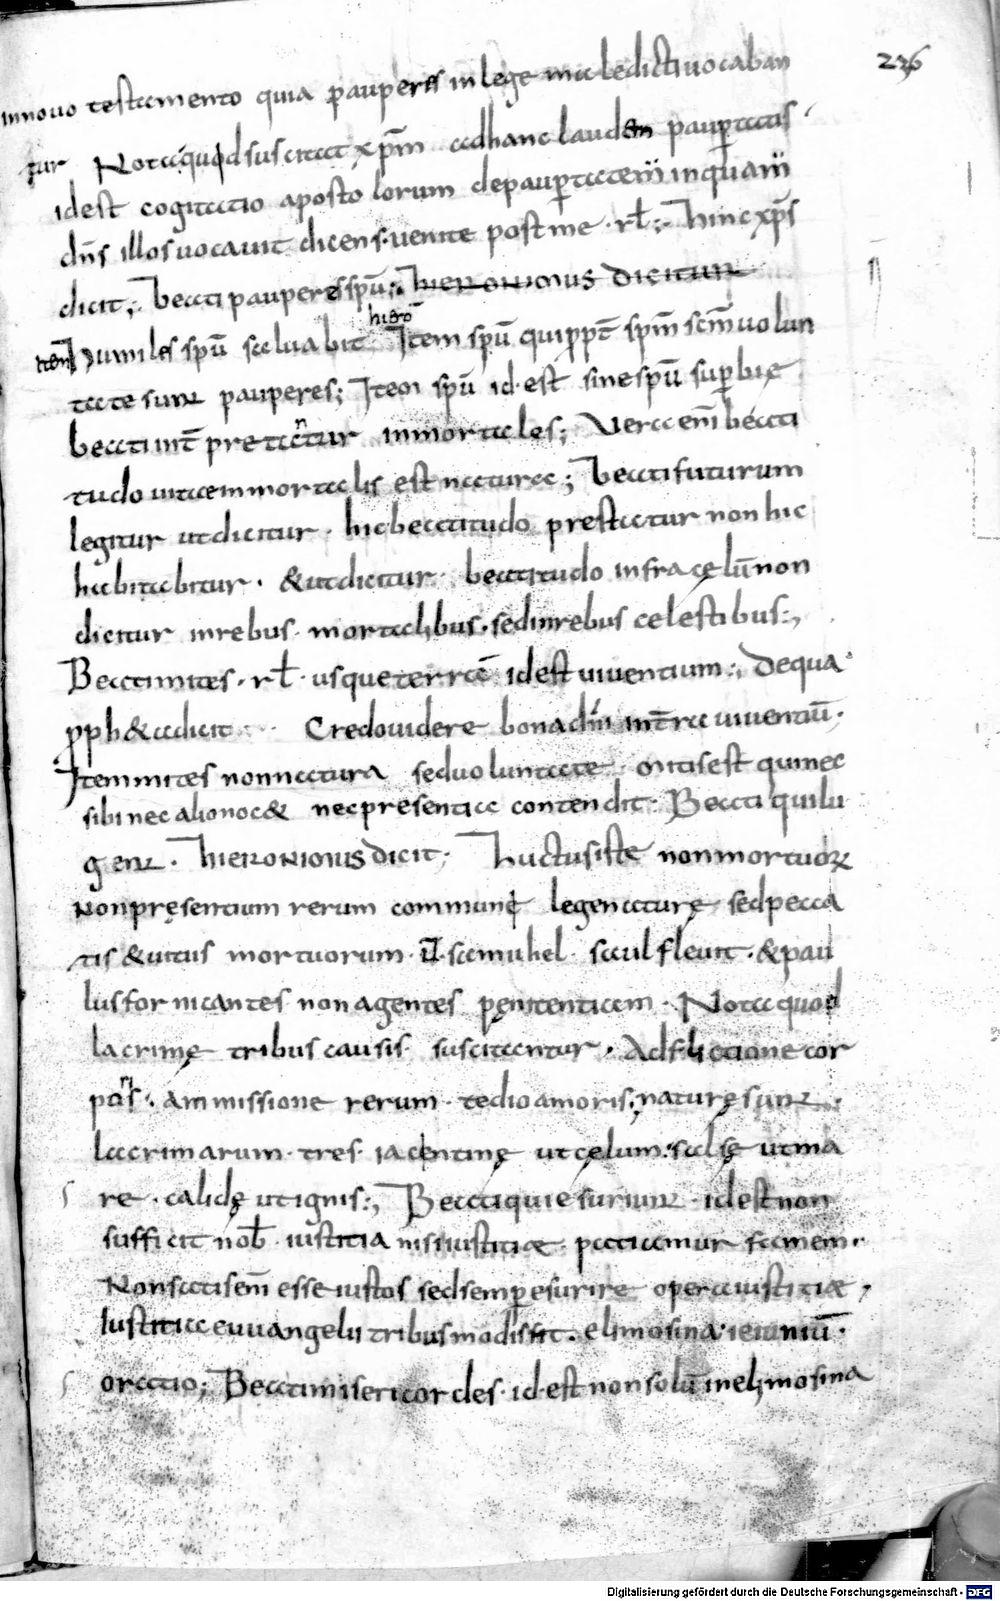 236
innouo testamento quia pauperes inlege maledicti uocaban
tur Nota quod suscitat xp̄m adhanc laudem paup̲tatis
idest cogitatio apostolorum depaup̲tatem̄ inquam̄
dn̄s illos uocauit dicens· uenite postme · rł;· hinc xp̄s
dicit;· beati pauperes spū;· hieronimus dicitur
hiero̅
item̅ humiles spū saluabit Item spū quippt̄ spm̄ scm̄ uolun
tate sunt pauperes; Item spū id·est sinespū sup̲bię
beati int̄pretantur inmortales; Vera em̄ beati
tudo uita inmortalis est natura; beati futurum
legitur utdicitur · hic beatitudo prestatur non hic
habitabitur · &utdicitur · beatitudo infra cęlū non
dicitur inrebus · mortalibus · sedinrebus celestibus:,
Beati mites · rł · usque terrā idest uiuentium:, Dequa
pph&a dicit · Credo uidere bona dn̄i int̄ra uiuentiū ·
Item mites nonnatura seduoluntate · mitis est qui nec
sibi nec alio noc& nec presentia contendit · Beati quilu
gent · hieronimus dicit; Luctus iste non mortuorum
Nonpręsentium rerum communi legenaturę sedpecca
tis &uitiis mortuorum · ut samuhel saul fleuit · &pau
lus fornicantes non agentes pęnitentiam · Nota quod
lacrimę tribus causis suscitantur · Adflictione cor
poris · ammissione rerum · tedio amoris; naturę sunt
lacrimarum · tres · iacentinę ut cęlum · salsę ut ma
re · calidę ut ignis:, Beati qui esuriunt · idest non
sufficit nob̄ · iustitia nisi iustitiae · patiamur famem ·
Non satis em̄ esse iustos sed semp̲ esurire opera iustitiae ,
Iustitia euuangelii tribus modis fit · elimosina · ieiuniū ·
oratio; Beati misericordes · id·est nonsolū inelimosina
Digitalisierung gefördert durch die Deutsche Forschungsgemeinschaft · DFG